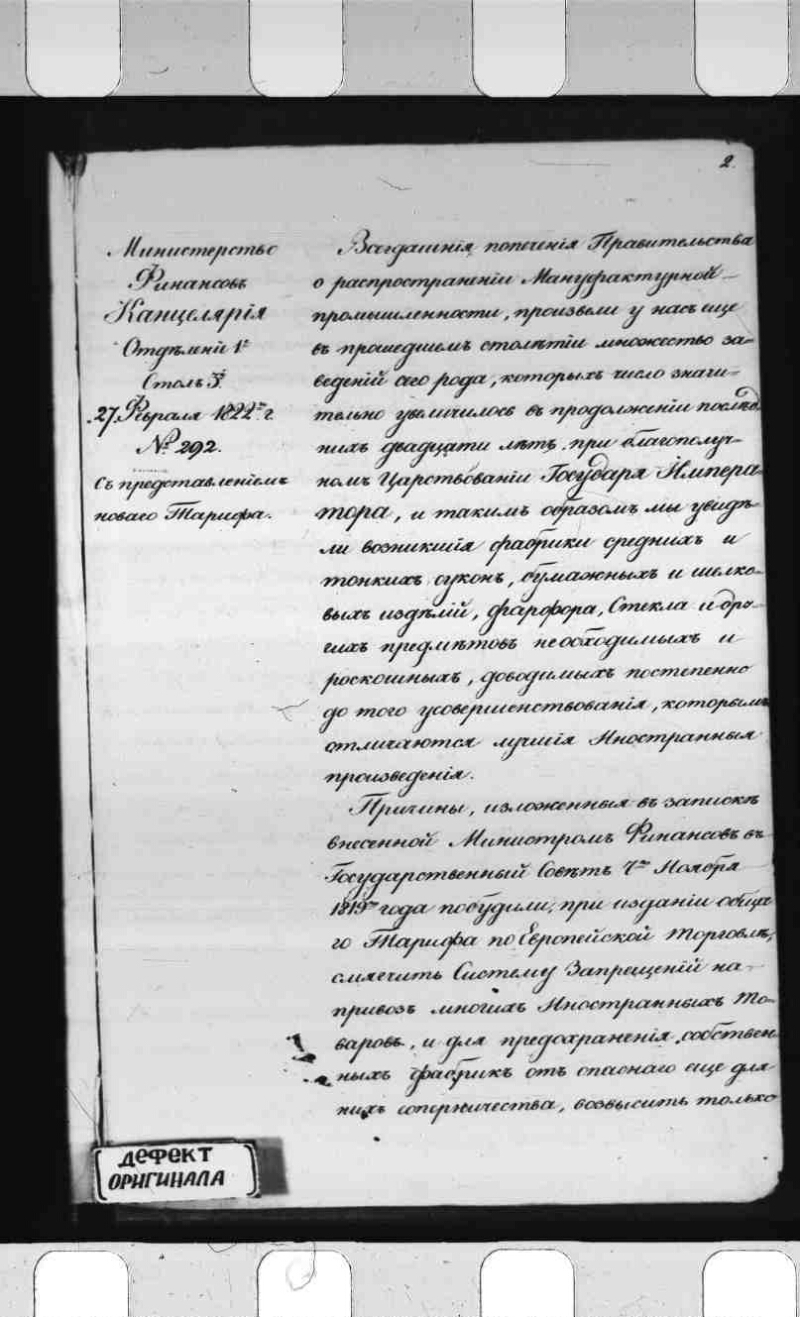 2.
Министерство
Финансовъ
Канцелярія
Отдѣленія 1е
Столъ 3й
27 Февраля 1822го г.
№ 292.
Съ представленіемъ
новаго Тарифа.
Всегдашнія попеченія Правительства
о распространеніи Мануфактурной
промышленности, произвели у насъ еще
въ прошедшемъ столѣтіи множество за-
веденій сего рода, которыхъ число значи-
тельно увеличилось въ продолженіи послѣд
нихъ двадцати лѣтъ при благополуч-
номъ Царствованіи Государя Импера-
тора, и такимъ образомъ мы увидѣ-
ли возникшія фабрики среднихъ и
тонкихъ суконъ, бумажныхъ и шелко-
выхъ издѣлій, фарфора, Стекла и дру-
гихъ предмѣтовъ необходимыхъ и
роскошныхъ, доводимыхъ постепенно
до того усовершенствованія, которымъ
отличаются лучшія Иностранныя
произведенія.
Причины, изложенныя въ запискѣ
внесенной Министромъ Финансовъ въ
Государственный Совѣтъ 7го Ноября
1819го года побудили, при изданіи обща
го Тарифа по Европейской торговлѣ,
смягчить Систему Запрещеній на
привозъ многихъ Иностранныхъ то-
варовъ, и для предохраненія собствен
ныхъ фабрикъ отъ опаснаго еще для
нихъ соперничества, возвысить только
ДЕФЕКТ
ОРИГИНАЛА